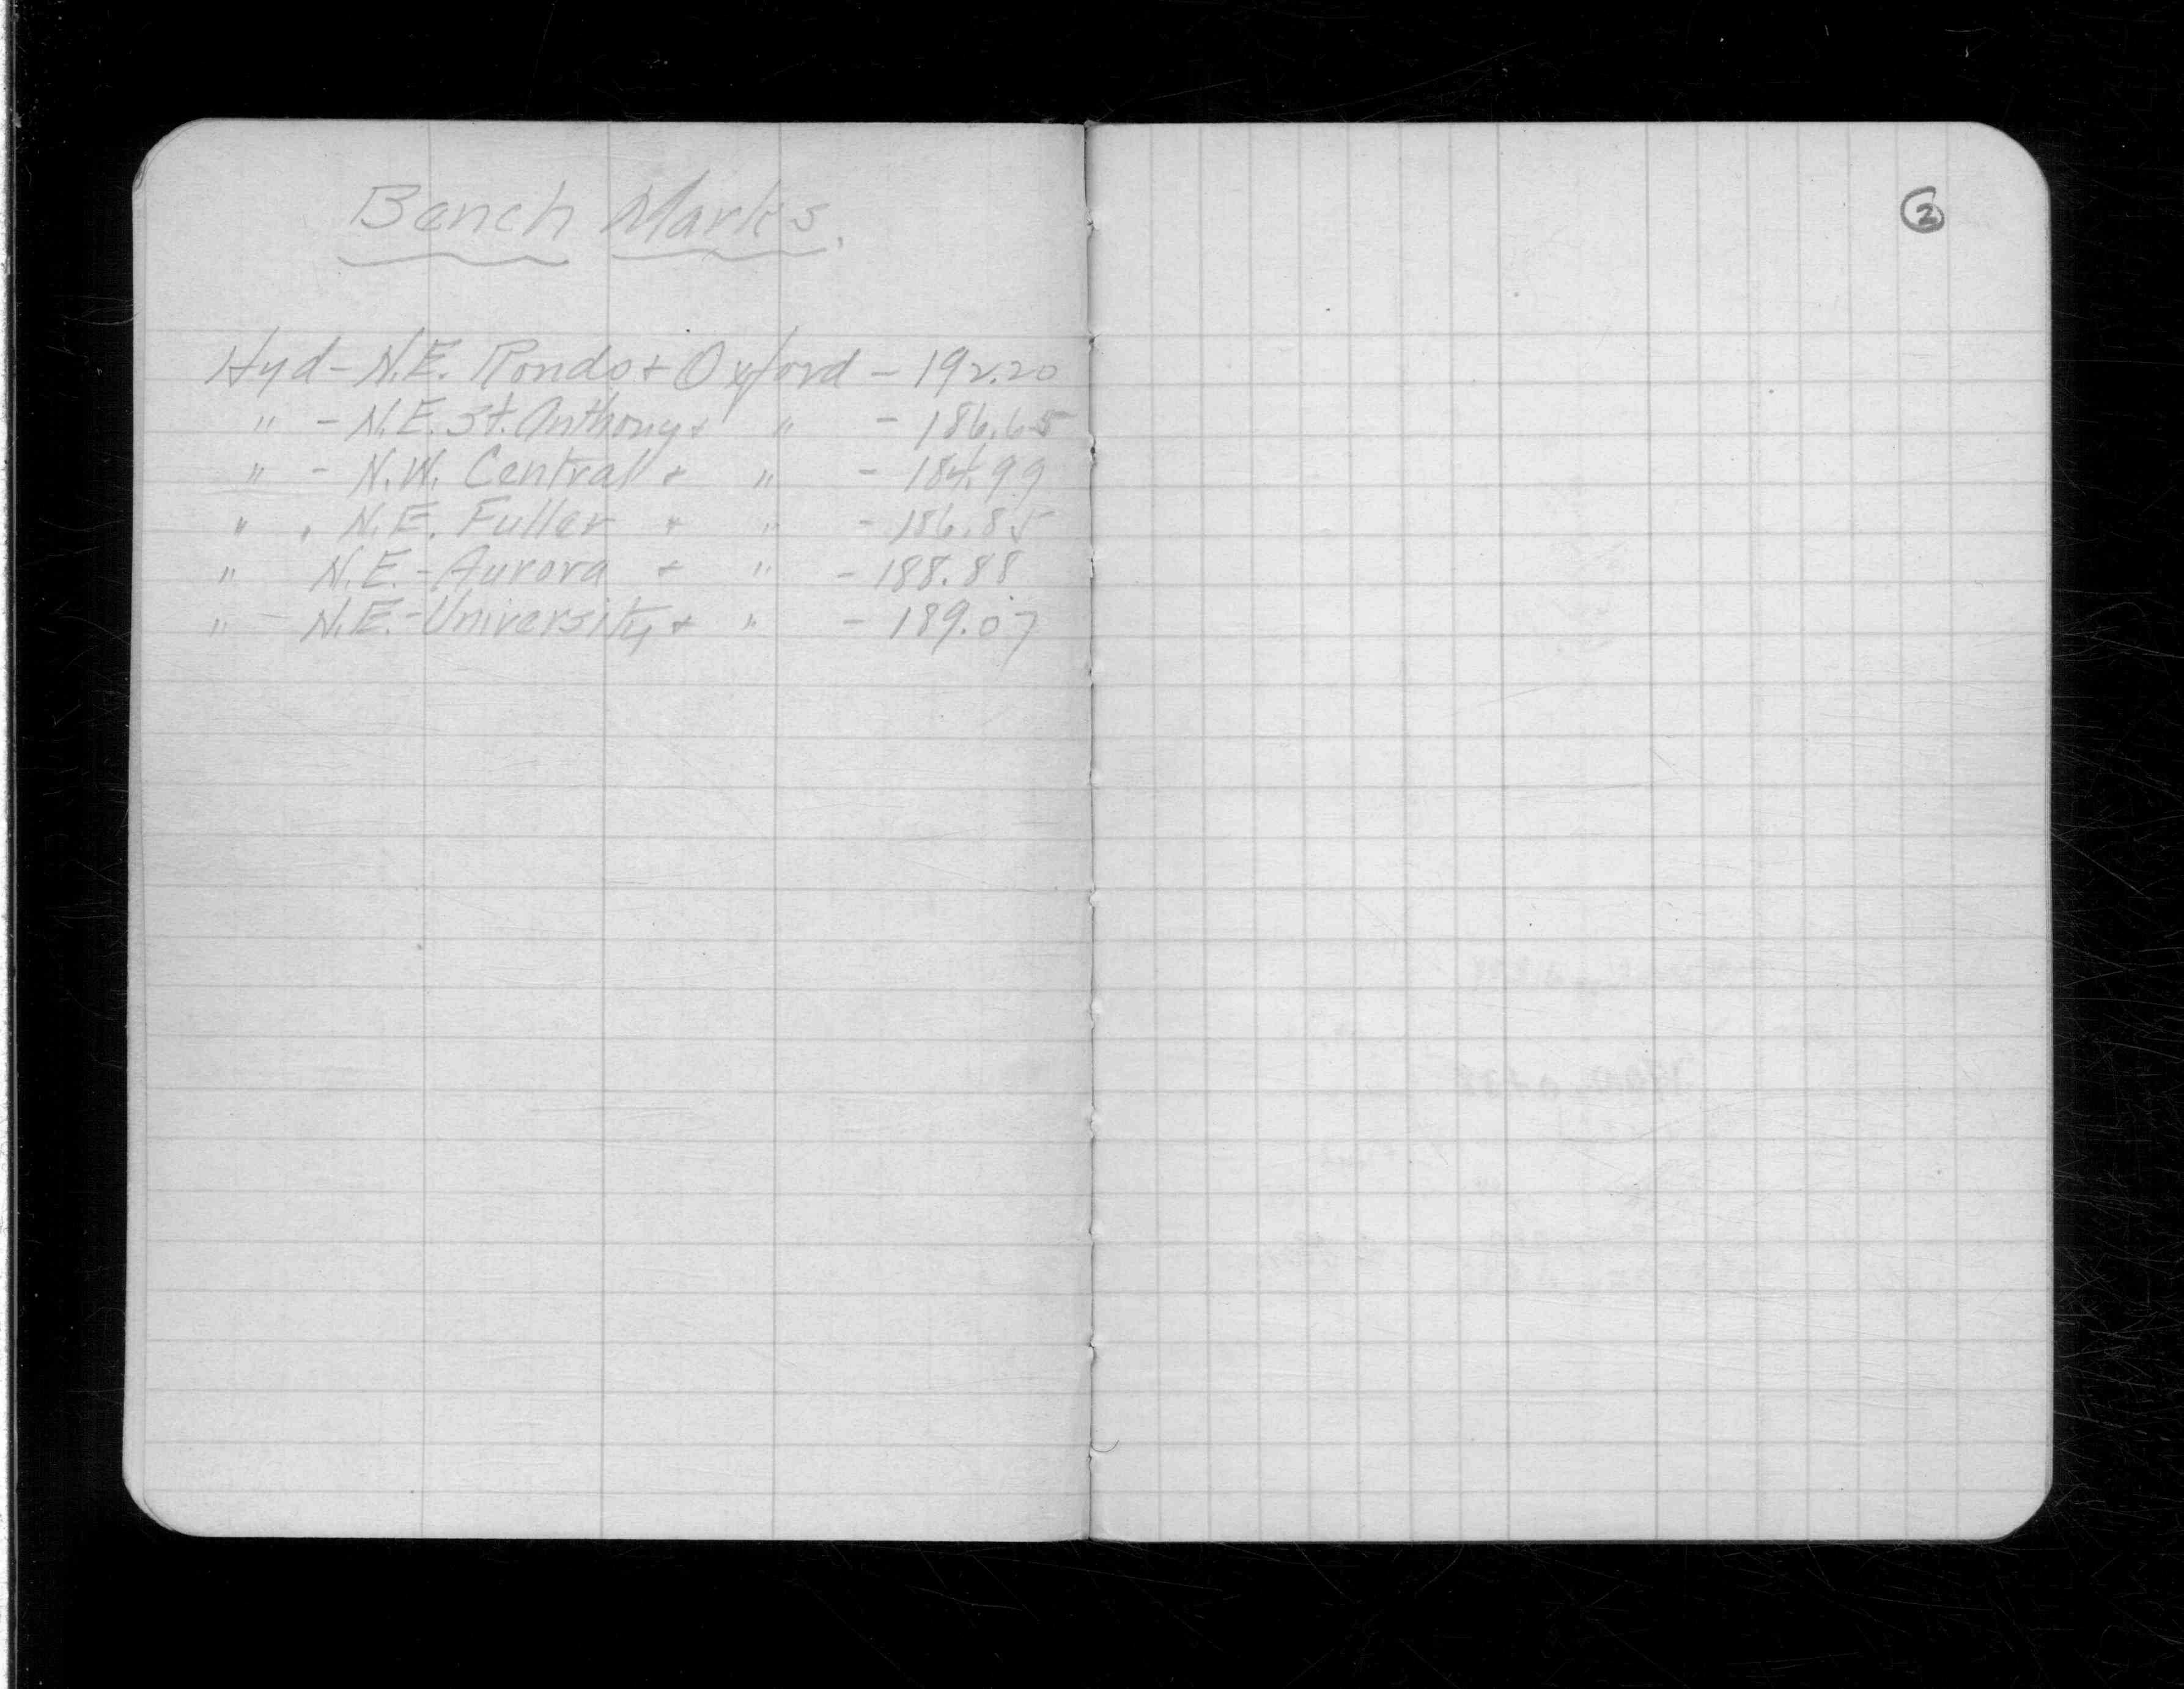 Bench Marks.
Hyd - N.E. Rondo + Oxford - 192.20
" - N.E. St. Anthony + " - 186.65
" - N.W. Central + " - 184.99
" " N.E. Fuller + " - 186.85
" N.E. - Aurora + " - 188.88
" - N.E. - University + " - 189.07
2